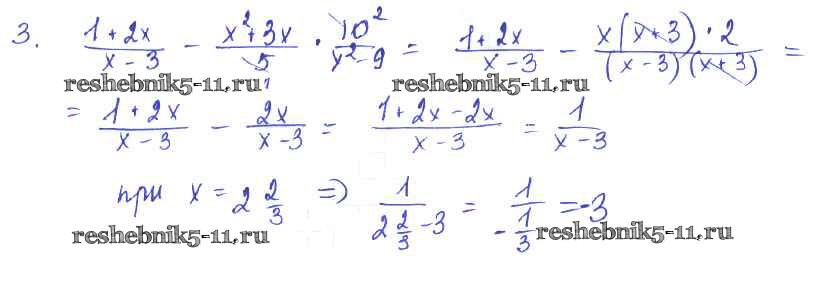 3. (1+2x)/(x-3) - (x²+3x)/5 · 10²/(x²-9) = (1+2x)/(x-3) - (x(x+3)·2)/((x-3)(x+3)) =
reshebnik5-11.ru reshebnik5-11.ru
= (1+2x)/(x-3) - 2x/(x-3) = (1+2x-2x)/(x-3) = 1/(x-3)
при x = 2 2/3 => 1/(2 2/3 - 3) = 1/(-1/3) = -3
reshebnik5-11.ru reshebnik5-11.ru